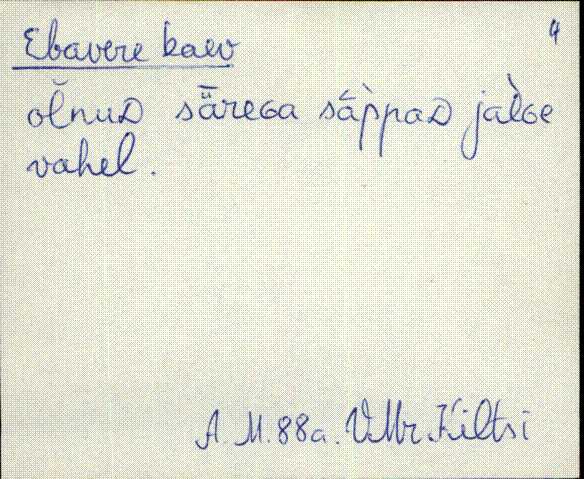 4
Ebavere kaev
ol̆nuD sǟreGa säp̀paD jal̀Ge
vahel.
A. M. 88a. VMr Kiltsi